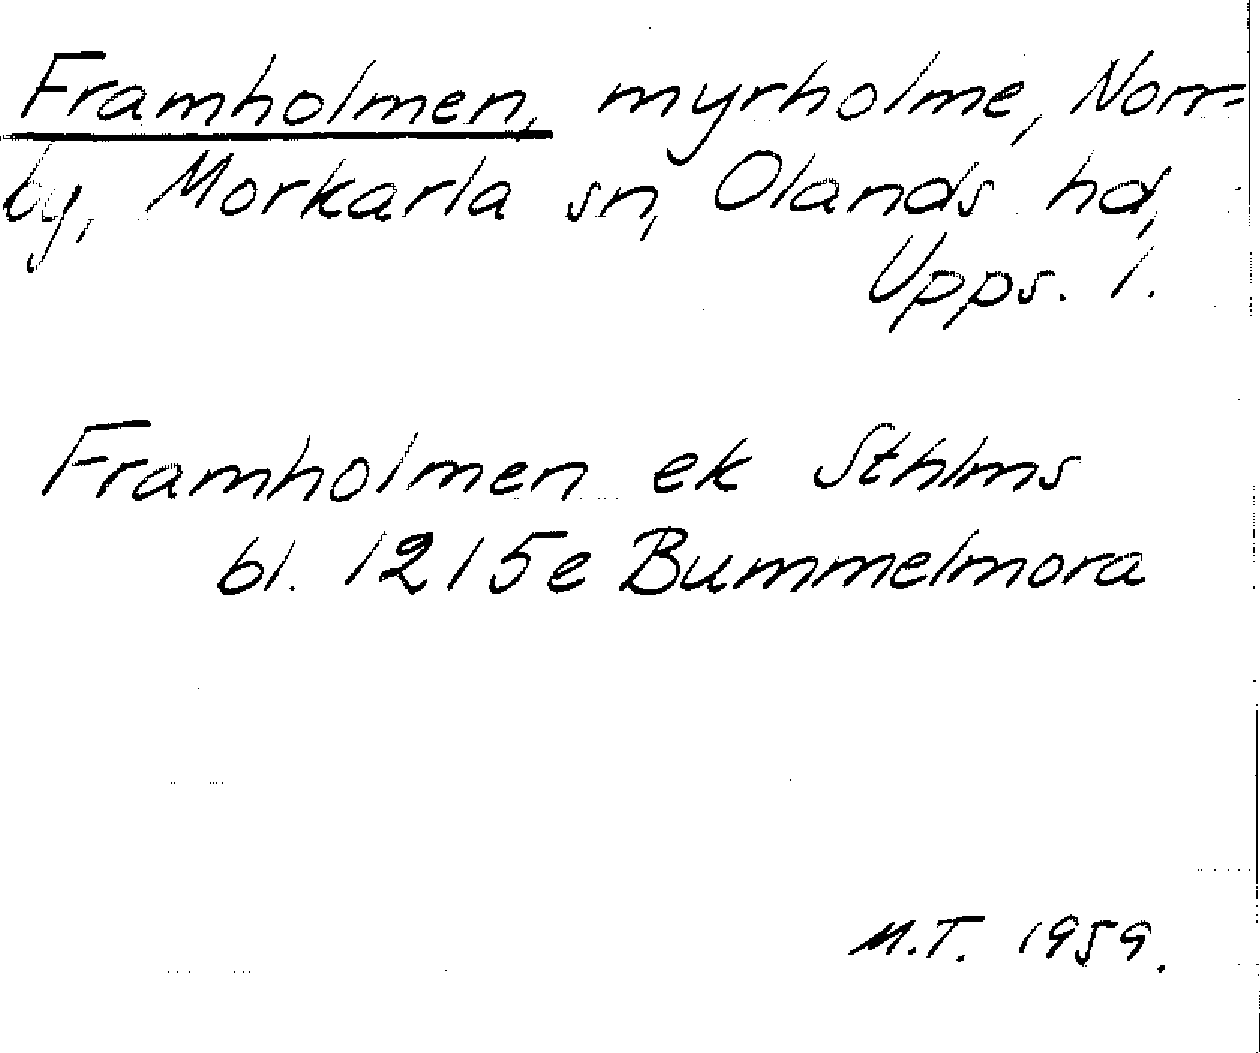 Framholmen, myrholme, Norr-
by, Morkarla sn, Olands hd,
Upps. l.
Framholmen ek Sthlms
bl. 1215e Bummelmora
M.T. 1959.